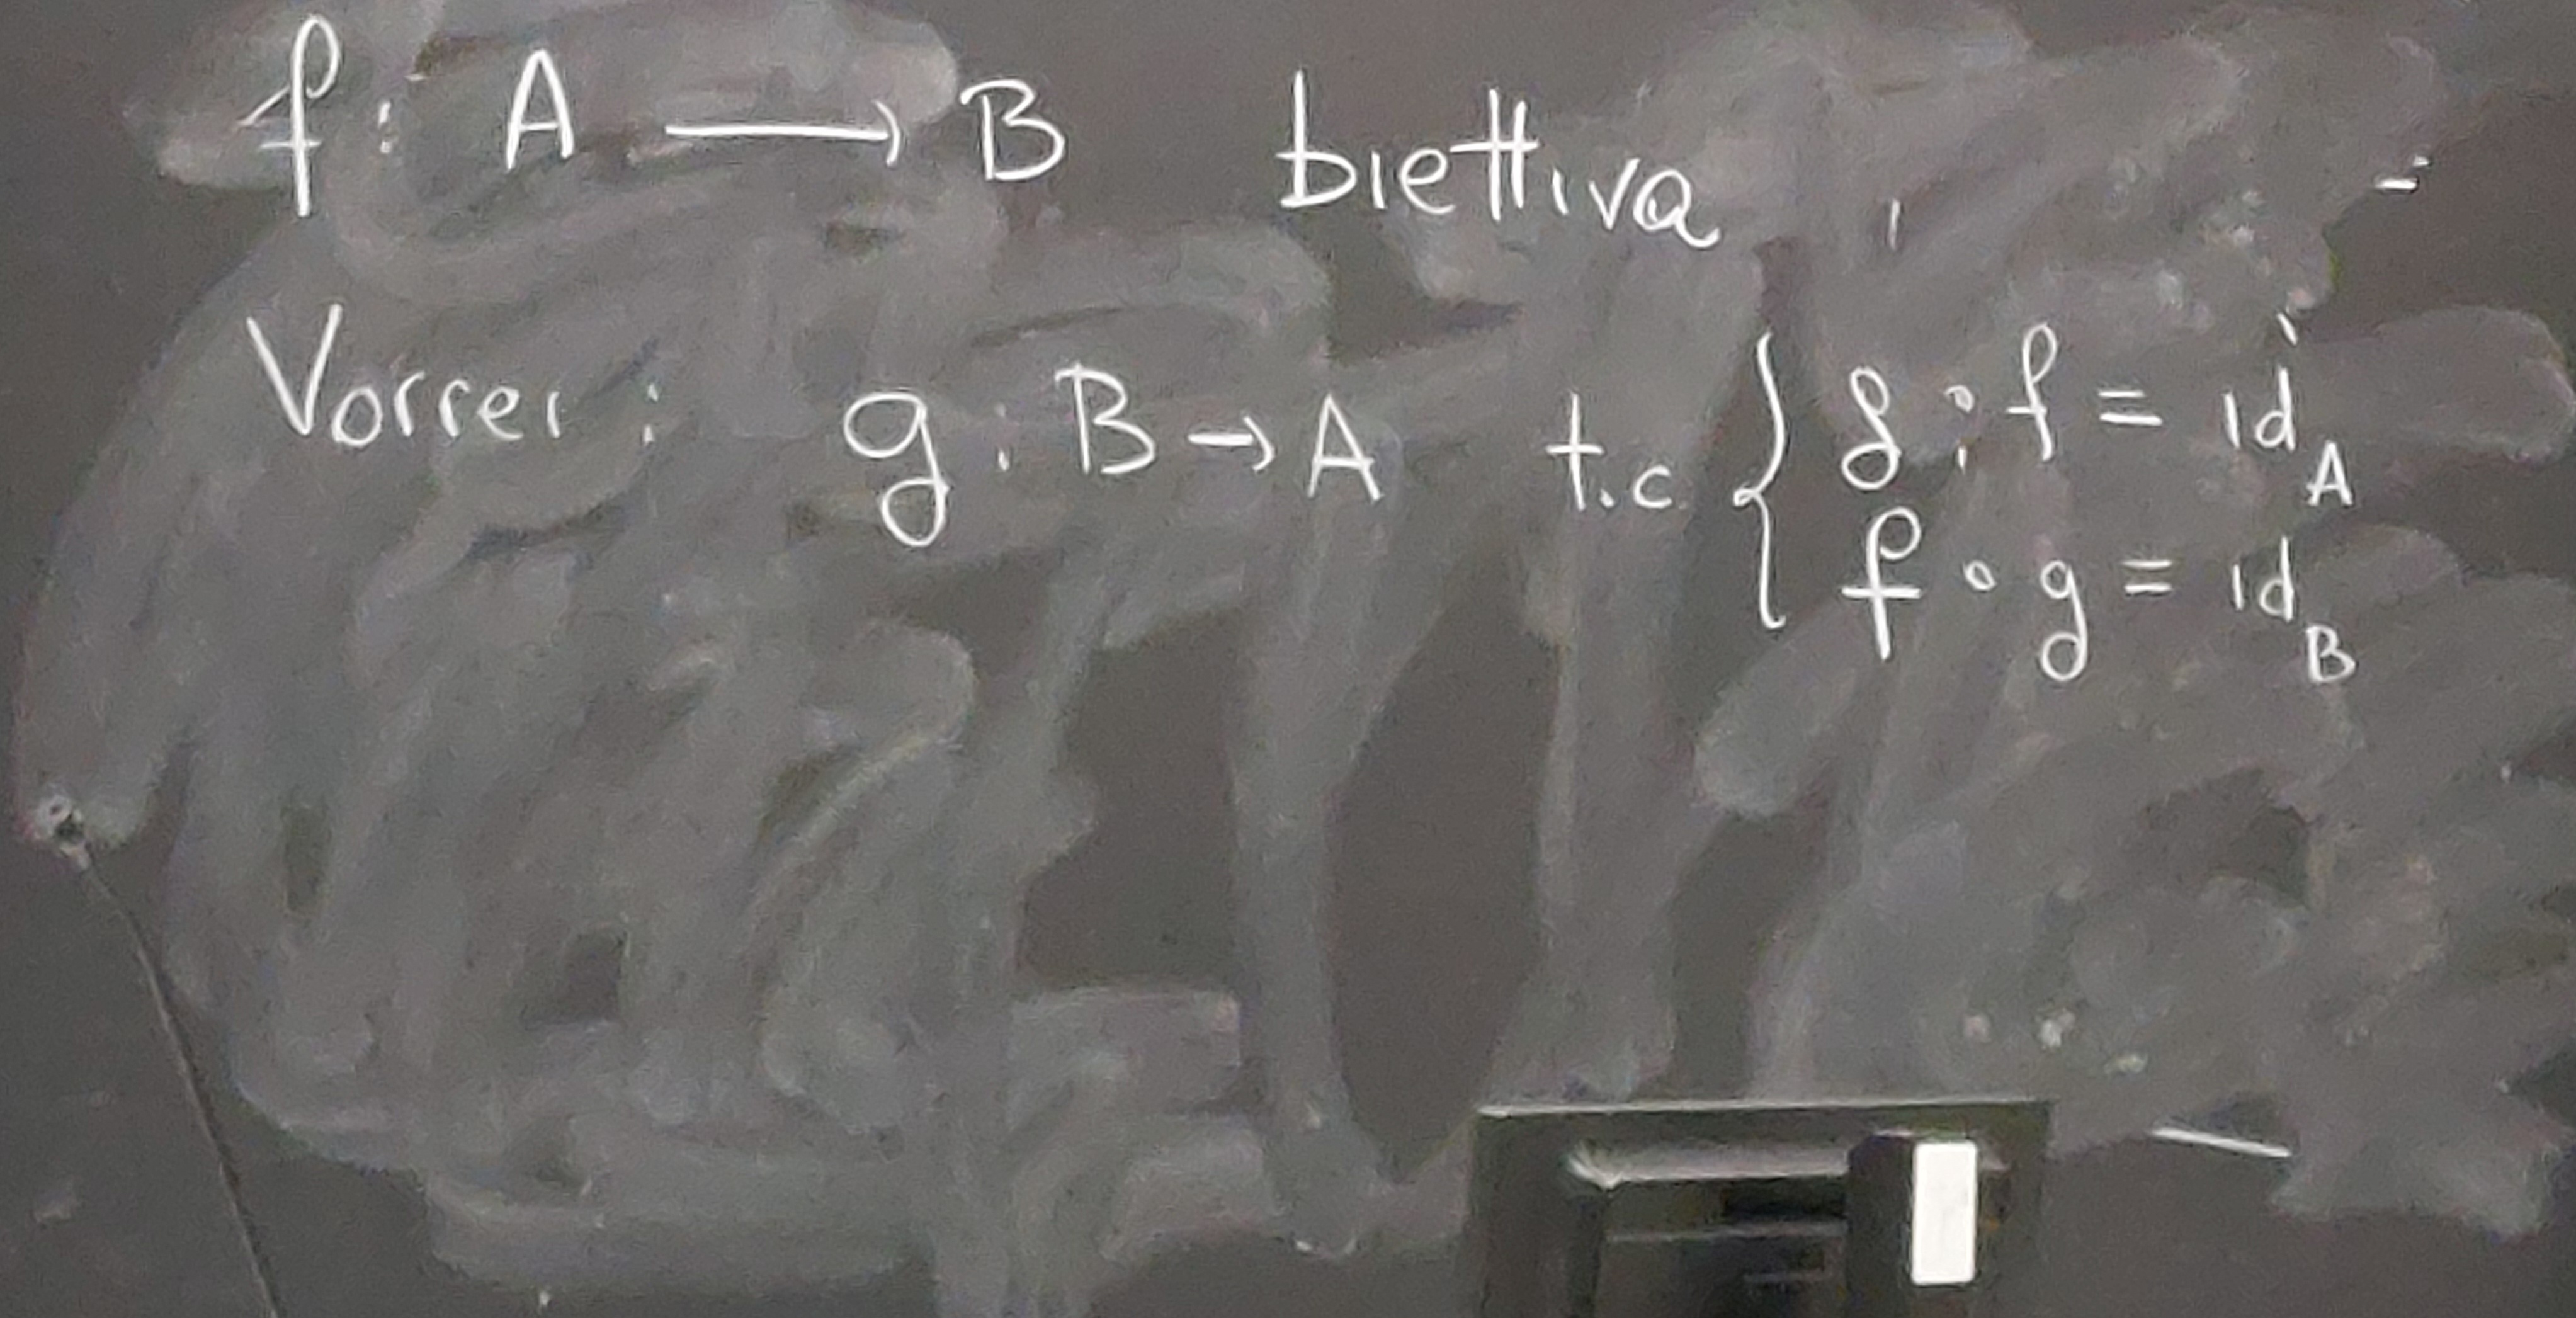 f : A → B biettiva
Vorrei : g : B → A t.c. { g ∘ f = id_A
f ∘ g = id_B